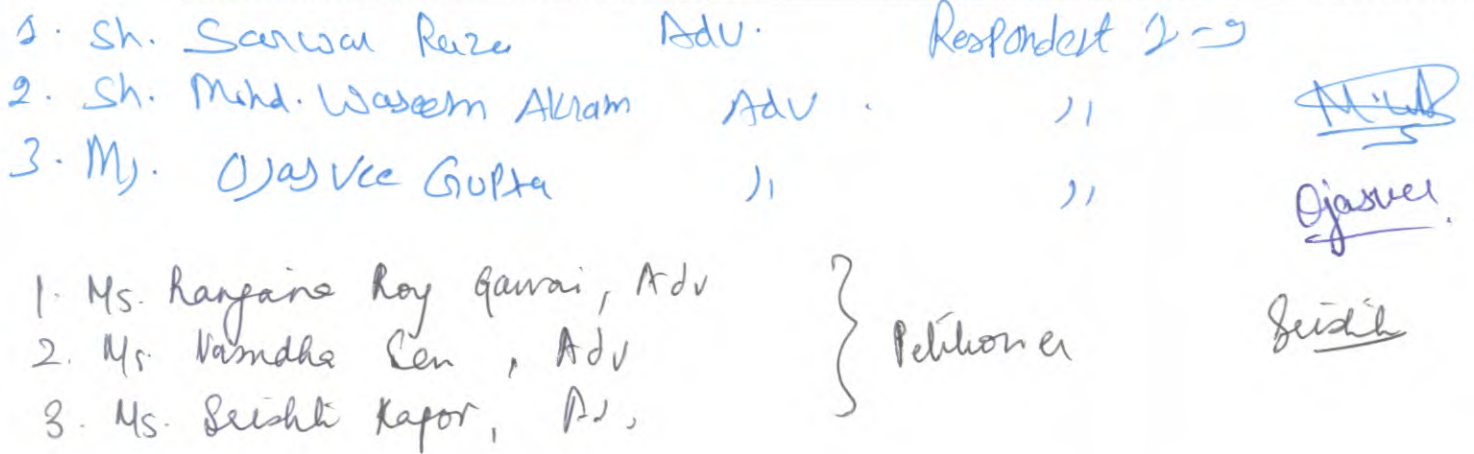 1. Sh. Sarwar Raza Adv. Respondent 2-9
2. Sh. Mohd. Waseem Akram Adv. ,,
3. Ms. Ojasvee Gupta ,, ,, Ojasvee
1. Ms. Ranjana Roy Gawai, Adv
2. Ms. Vasudha Sen, Adv Petitioner
3. Ms. Srishti Kapor, Ad, Srishti